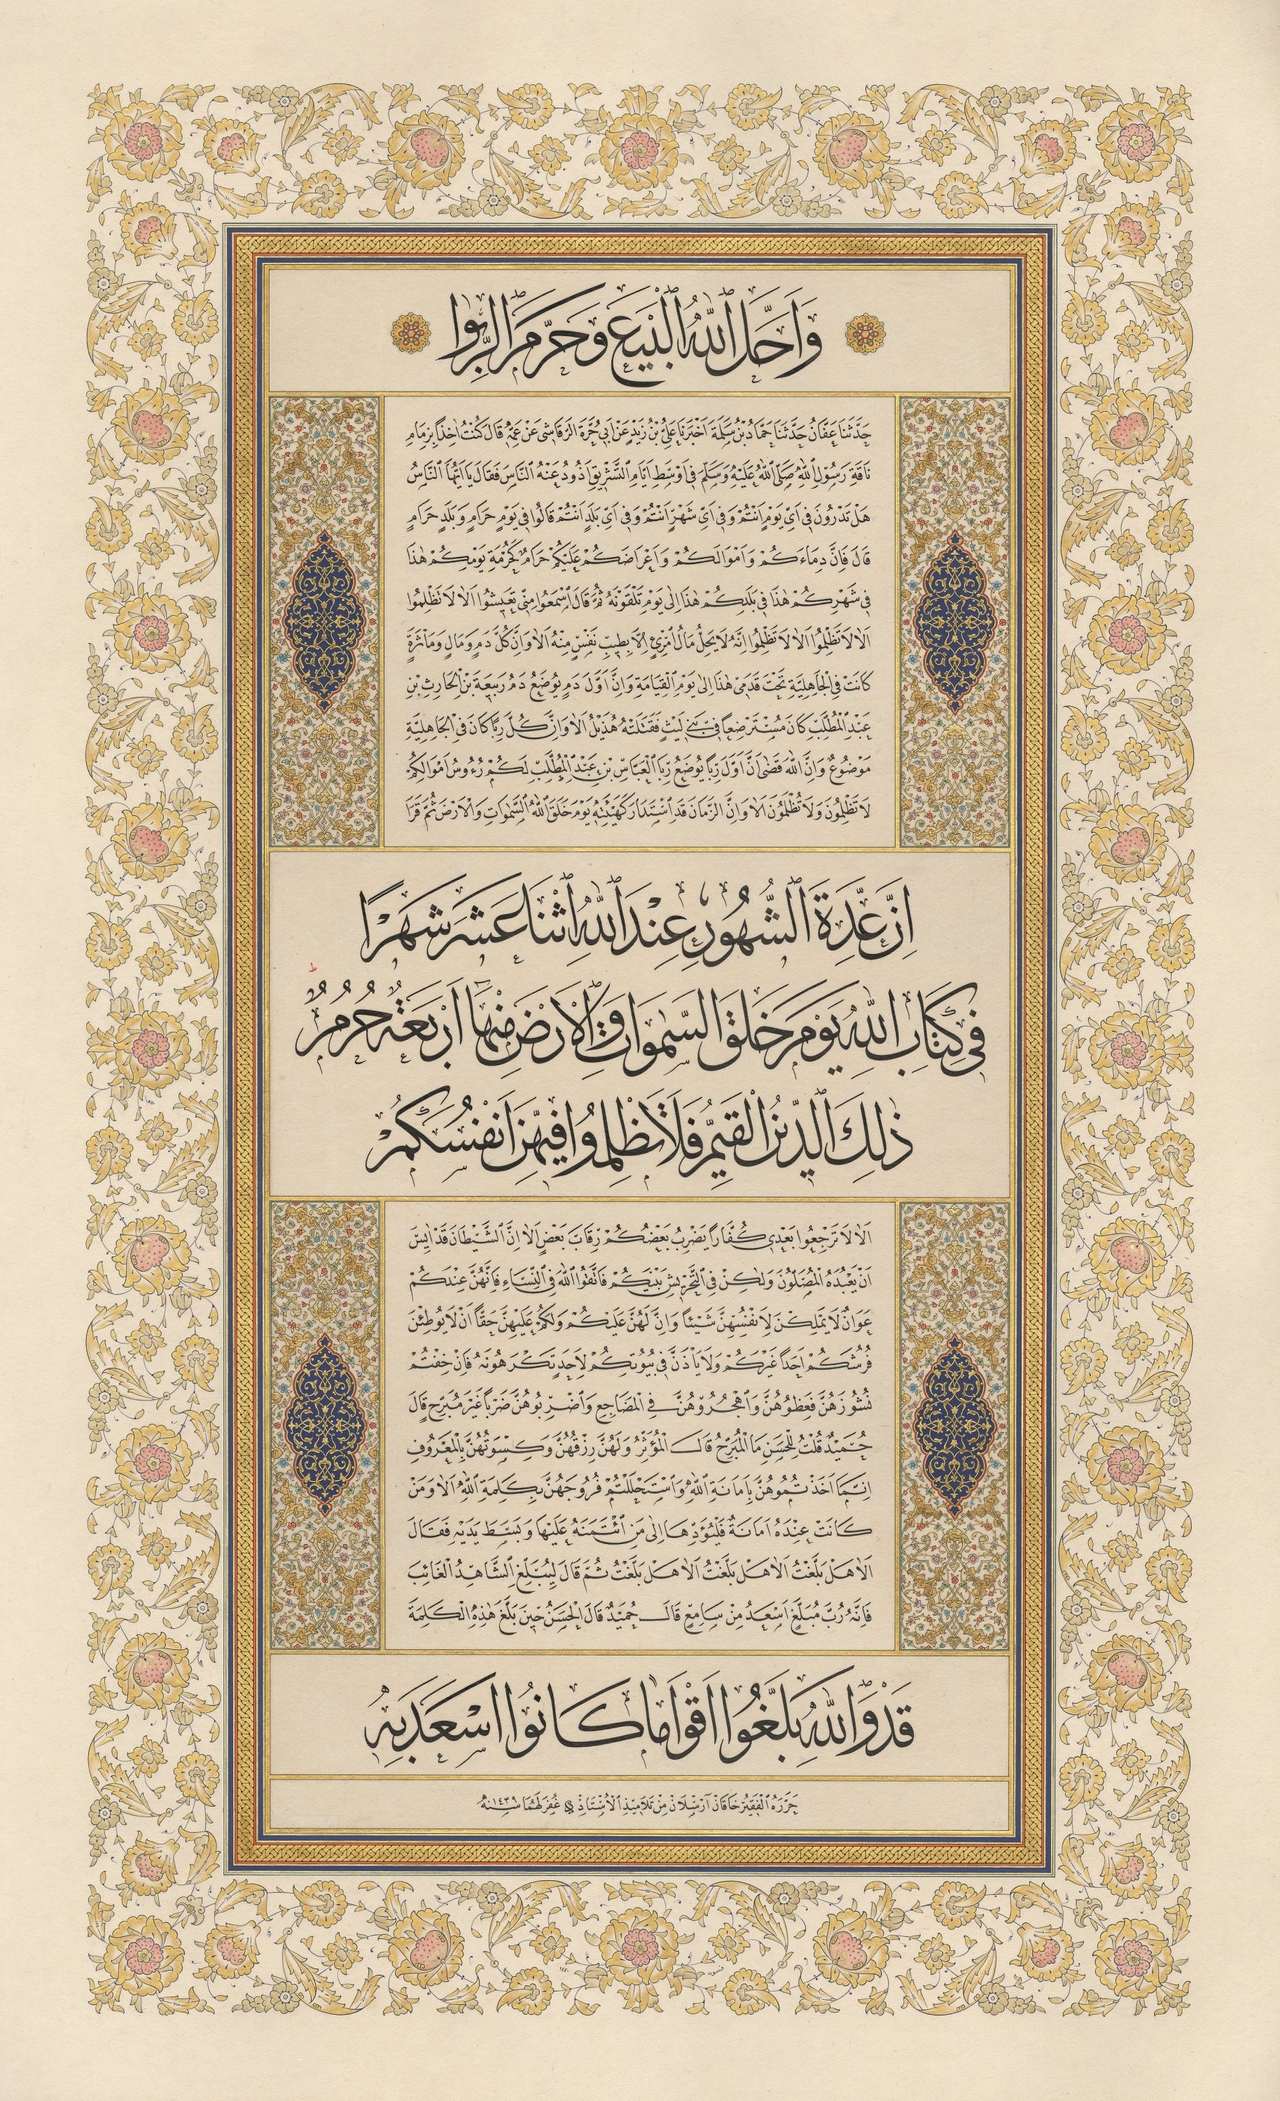 وَاَحَلَّ ٱللّٰهُ ٱلْبَيْعَ وَحَرَّمَ ٱلرِّبٰوا
حَدَّثَنَا عَفَّانُ حَدَّثَنَا حَمَّادُ بْنُ سَلَمَةَ اَخْبَرَنَا عَلِيُّ بْنُ زَيْدٍ عَنْ اَبِي حُرَّةَ الرَّقَاشِي عَنْ عَمِّهِ قَالَ كُنْتُ اٰخِذًا بِزِمَامِ
نَاقَةِ رَسُولِ اللّٰهِ صَلَّى اللّٰهُ عَلَيْهِ وَسَلَّمَ فِي اَوْسَطِ اَيَّامِ التَّشْرِيقِ اَذُودُ عَنْهُ النَّاسَ فَقَالَ يَا اَيُّهَا النَّاسُ
هَلْ تَدْرُونَ فِي اَيِّ يَوْمٍ اَنْتُمْ وَفِي اَيِّ شَهْرٍ اَنْتُمْ وَفِي اَيِّ بَلَدٍ اَنْتُمْ قَالُوا فِي يَوْمٍ حَرَامٍ وَبَلَدٍ حَرَامٍ
قَالَ فَاِنَّ دِمَاءَكُمْ وَاَمْوَالَكُمْ وَاَعْرَاضَكُمْ عَلَيْكُمْ حَرَامٌ كَحُرْمَةِ يَوْمِكُمْ هٰذَا
فِي شَهْرِكُمْ هٰذَا فِي بَلَدِكُمْ هٰذَا اِلٰى يَوْمِ تَلْقَوْنَهُ ثُمَّ قَالَ اسْمَعُوا مِنِّي تَعِيشُوا اَلَا لَا تَظْلِمُوا
اَلَا لَا تَظْلِمُوا اَلَا لَا تَظْلِمُوا اِنَّهُ لَا يَحِلُّ مَالُ امْرِئٍ اِلَّا بِطِيبِ نَفْسٍ مِنْهُ اَلَا وَاِنَّ كُلَّ دَمٍ وَمَالٍ وَمَأْثَرَةٍ
كَانَتْ فِي الْجَاهِلِيَّةِ تَحْتَ قَدَمِي هٰذِا اِلٰى يَوْمِ الْقِيَامَةِ وَاِنَّ اَوَّلَ دَمٍ يُوضَعُ دَمُ رَبِيعَةَ بْنِ الْحَارِثِ بْنِ
عَبْدِ الْمُطَّلِبِ كَانَ مُسْتَرْضِعًا فِي بَنِي لَيْثٍ فَقَتَلَتْهُ هُذَيْلُ اَلَا وَاِنَّ كُلَّ رِبًا كَانَ فِي الْجَاهِلِيَّةِ
مَوْضُوعٌ وَاِنَّ اللّٰهَ قَضٰى اَنَّ اَوَّلَ رِبًا يُوضَعُ رِبَا الْعَبَّاسِ بْنِ عَبْدِ الْمُطَّلِبِ لَكُمْ رُءُوسُ اَمْوَالِكُمْ
لَا تَظْلِمُونَ وَلَا تُظْلَمُونَ اَلَا وَاِنَّ الزَّمَانَ قَدِ اسْتَدَارَ كَهَيْئَتِهِ يَوْمَ خَلَقَ اللّٰهُ السَّمٰوَاتِ وَالْاَرْضَ ثُمَّ قَرَاَ
اِنَّ عِدَّةَ ٱلشُّهُورِ عِنْدَ ٱللّٰهِ ٱثْنَا عَشَرَ شَهْرًا
فِي كِتَابِ ٱللّٰهِ يَوْمَ خَلَقَ ٱلسَّمٰوَاتِ وَٱلْاَرْضَ مِنْهَا اَرْبَعَةٌ حُرُمٌ
ذٰلِكَ ٱلدِّينُ ٱلْقَيِّمُ فَلَا تَظْلِمُوا فِيهِنَّ اَنْفُسَكُمْ
اَلَا لَا تَرْجِعُوا بَعْدِي كُفَّارًا يَضْرِبُ بَعْضُكُمْ رِقَابَ بَعْضٍ اَلَا اِنَّ الشَّيْطَانَ قَدْ اَيِسَ
اَنْ يَعْبُدَهُ الْمُصَلُّونَ وَلٰكِنْ فِي التَّحْرِيشِ بَيْنَكُمْ فَاتَّقُوا اللّٰهَ فِي النِّسَاءِ فَاِنَّهُنَّ عِنْدَكُمْ
عَوَانٌ لَا يَمْلِكْنَ لِاَنْفُسِهِنَّ شَيْئًا وَاِنَّ لَهُنَّ عَلَيْكُمْ وَلَكُمْ عَلَيْهِنَّ حَقًّا اَنْ لَا يُوطِئْنَ
فُرُشَكُمْ اَحَدًا غَيْرَكُمْ وَلَا يَأْذَنَّ فِي بُيُوتِكُمْ لِاَحَدٍ تَكْرَهُونَهُ فَاِنْ خِفْتُمْ
نُشُوزَهُنَّ فَعِظُوهُنَّ وَاهْجُرُوهُنَّ فِي الْمَضَاجِعِ وَاضْرِبُوهُنَّ ضَرْبًا غَيْرَ مُبَرِّحٍ قَالَ
حُمَيْدٌ قُلْتُ لِلْحَسَنِ مَا الْمُبَرِّحُ قَالَ الْمُؤَثِّرُ وَلَهُنَّ رِزْقُهُنَّ وَكِسْوَتُهُنَّ بِالْمَعْرُوفِ
اِنَّمَا اَخَذْتُمُوهُنَّ بِاَمَانَةِ اللّٰهِ وَاسْتَحْلَلْتُمْ فُرُوجَهُنَّ بِكَلِمَةِ اللّٰهِ اَلَا وَمَنْ
كَانَتْ عِنْدَهُ اَمَانَةٌ فَلْيُؤَدِّهَا اِلٰى مَنِ ائْتَمَنَهُ عَلَيْهَا وَبَسَطَ يَدَيْهِ فَقَالَ
اَلَا هَلْ بَلَّغْتُ اَلَا هَلْ بَلَّغْتُ اَلَا هَلْ بَلَّغْتُ ثُمَّ قَالَ لِيُبَلِّغِ الشَّاهِدُ الْغَائِبَ
فَاِنَّهُ رُبَّ مُبَلَّغٍ اَسْعَدُ مِنْ سَامِعٍ قَالَ حُمَيْدٌ قَالَ الْحَسَنُ حِينَ بَلَّغَ هٰذِهِ الْكَلِمَةَ
قَدْ وَاللّٰهِ بَلَّغُوا اَقْوَامًا كَانُوا اَسْعَدَ بِهِ
حَرَّرَهُ الْفَقِيرُ خَاقَانْ آرْسْلَانْ مِنْ تَلَامِيذِ الْاُسْتَاذْ غُفِرَ لَهُمَا سَنَةَ